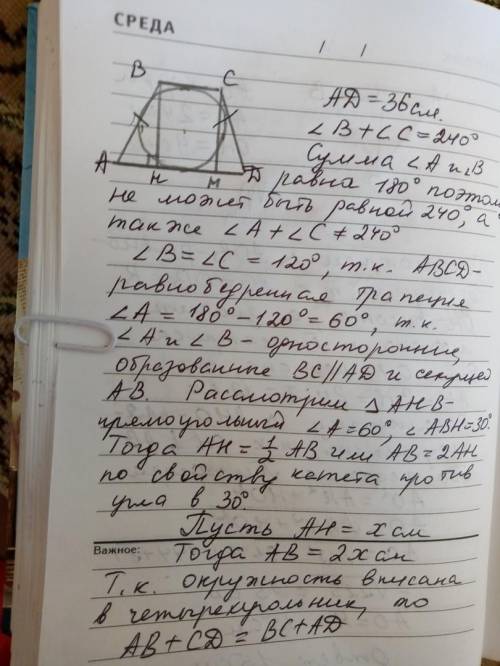 СРЕДА
B C
A H M D
AD = 36 см.
∠B + ∠C = 240°
Сумма ∠A и ∠B
равна 180° поэтом
не может быть равной 240°, а
также ∠A + ∠C ≠ 240°
∠B = ∠C = 120°, т.к. ABCD-
равнобедренная трапеция
∠A = 180° - 120° = 60°, т.к.
∠A и ∠B - односторонние,
образованные BC || AD и секущей
AB. Рассмотрим △AHB-
прямоугольный ∠A = 60°, ∠ABH = 30°.
Тогда AH = 1/2 AB или AB = 2AH
по свойству катета против
угла в 30°.
Пусть AH = x см
Важное: Тогда AB = 2x см
Т.к. окружность вписана
в четырехугольник, то
AB + CD = BC + AD